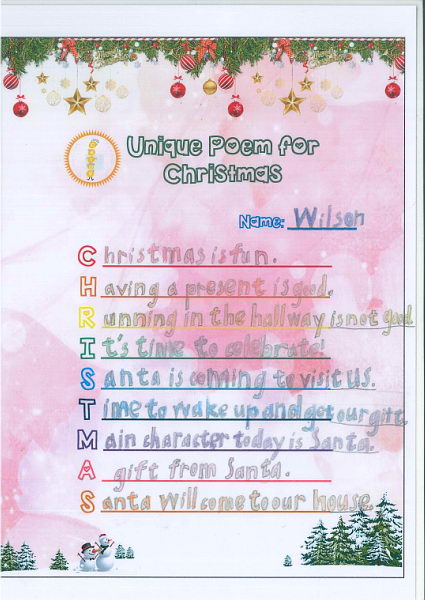 Unique Poem for
Christmas
Name: Wilson
Christmas is fun.
Having a present is good.
Running in the hallway is not good.
It's time to celebrate!
Santa is coming to visit us.
Time to wake up and get our gift.
Main character today is Santa.
A gift from Santa.
Santa will come to our house.